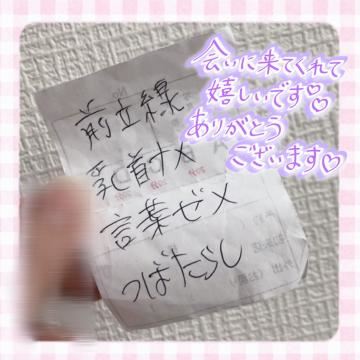 会いに来てくれて
嬉しいです♡
ありがとう
ございます♡
前立線
乳首ナメ
言葉ゼメ
つばたらし